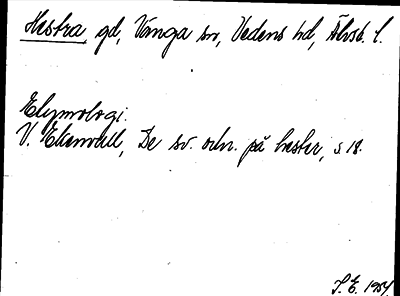 Hestra, gd, Vånga sn, Vedens hd, Älvsb. l.
Etymologi.
V. Ekenvall, De sv. odn. på hester, s. 18.
S. E. 1954.